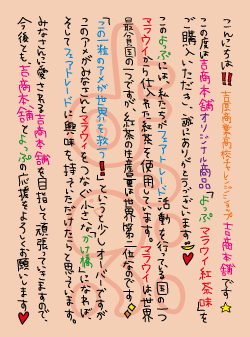 こんにちは!!吉原商業高校チャレンジショップ吉商本舗です☆
この度は吉商本舗オリジナル商品「よっぷ マラウイ紅茶味」を
ご購入いただき、誠にありがとうございます
このよっぷには、私たちがフェアトレード活動を行っている国の一つ
マラウイから仕入れた紅茶を使用しています。マラウイは世界
最貧国の一つですが、紅茶の生産量は世界第二位なのです!!
「この一粒のアメが世界を救う!!」というと少しオーバーですが
このアメがみなさんとマラウイをつなぐ小さな"かけ橋"になれば、
そしてフェアトレードに興味を持っていただけたらと思っています。
みなさんに愛される吉商本舗を目指して頑張っていきますので、
今後とも吉商本舗とよっぷの応援をよろしくお願いします♥